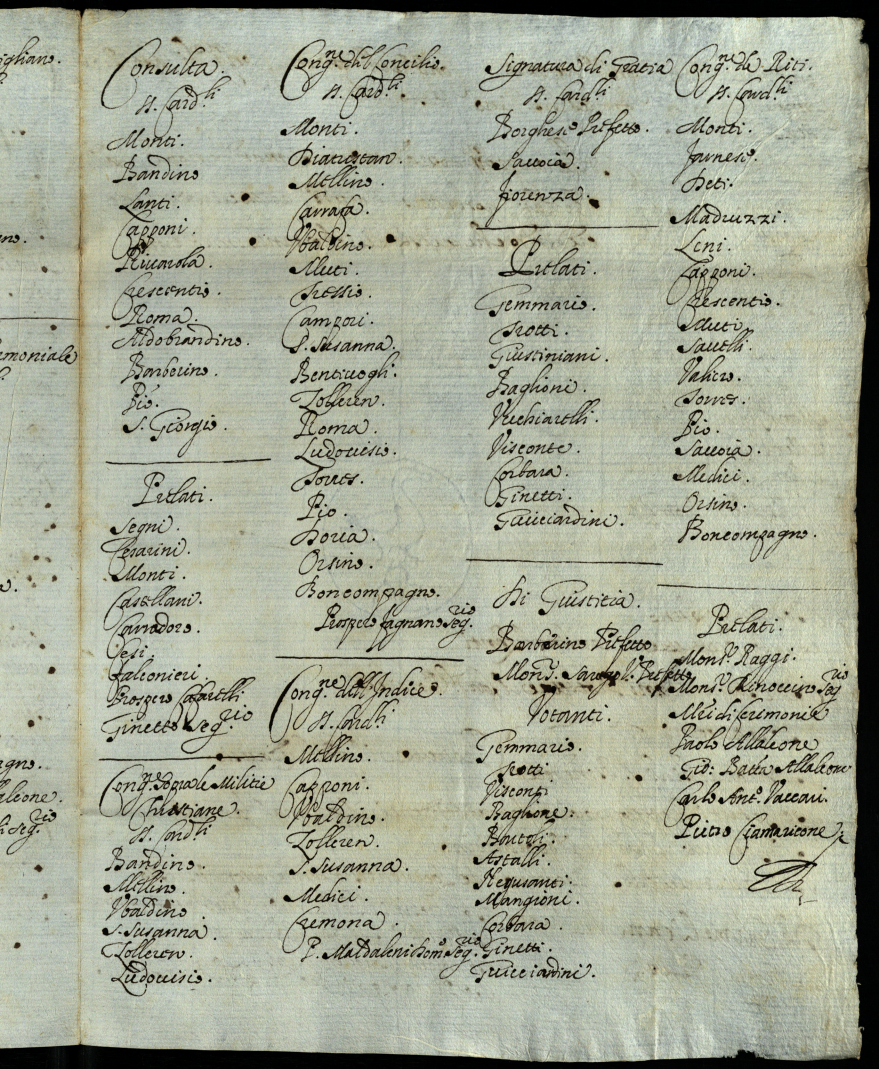 Consulta.
SS. Card.li
Monti.
Bandino
Lanti.
Capponi.
Rivarola.
Crescentio.
Roma.
Aldobrandino.
Barberino.
Pio.
S. Giorgio.
Prelati.
Segni.
Cesarini.
Monti.
Castellani.
Corradoro.
Cesi.
Falconieri.
Prospero Cafarelli
Ginetto Seg.rio
Cong.ne sopra le Militie
Christiane.
SS. Card.li
Bandino.
Mellino.
Vbaldino
S. Susanna.
Zolleren.
Ludovisio.
Cong.ne del Concilio.
SS. Card.li
Monti.
Diatristan.
Mellino.
Carrafa.
Vbaldino.
Muti.
Tressio.
Campori.
S. Susanna.
Bentivogli.
Zolleren.
Roma.
Ludovisio.
Torres.
Pio.
Doria.
Orsino.
Boncompagno.
Prospero fagnano Seg.rio
Cong.ne dell'Indice.
SS. Card.li
Mellino.
Capponi.
Vbaldino.
Zolleren.
S. Susanna.
Medici.
Cremona.
P. Madaleni Dom.o Seg.rio
Signatura di Gratia
SS. Card.li
Borghese Prefetto.
Savoia.
fiorenza.
Prelati.
Gemmario.
Trotti.
Giustiniani.
Baglioni.
Vecchiarelli.
Visconte.
Corbara.
Ginetti.
Guicciardini.
Di Giustitia.
Barberino Prefetto
Mons.r V. Prefetto
Votanti.
Gemmario.
Trotti
Visconti
Baglione.
Bartoli.
Astalli.
Negusanti.
Mangioni.
Corbara.
Ginetti.
Guicciardini.
Cong.ne de Riti.
SS. Card.li
Monti.
farnese.
Deti.
Madruzzi.
Leni.
Capponi.
Crescentio.
Muti
Savelli.
Valiero.
Torres.
Pio.
Savoia.
Medici.
Orsino.
Boncompagno.
Prelati.
Mons.r Raggi.
Mons.r Rinoccino Seg.rio
Mri di Cerimonie
Paolo Allaleone
Gio: Batta Allaleone
Carlo Ant.o Vaccari.
Pietro Ciamaricone